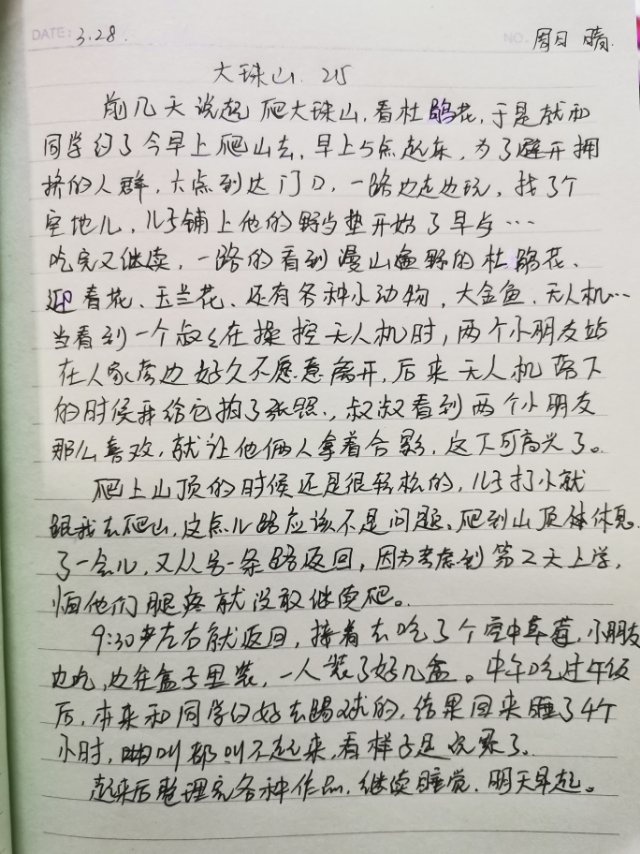 DATE: 3.28.
NO. 周日 晴.
大珠山. 215
前几天说起爬大珠山,看杜鹃花,于是就和
同学约了今早上爬山去,早上5点起来,为了避开拥
挤的人群,六点到达门口,一路边走边玩,找了个
空地儿,儿子铺上他的野当垫开始了早与…
吃完又继续,一路的看到漫山遍野的杜鹃花、
迎春花、玉兰花、还有各种小动物,大金鱼、无人机…
当看到一个叔々在操控无人机时,两个小朋友站
在人家旁边好久不愿意离开,后来无人机落下
的时候我给它拍了张照.,叔叔看到两个小朋友
那么喜欢,就让他俩人拿着合影,这下可高兴了。
爬上山顶的时候还是很轻松的,儿子打小就
跟我去爬山,这点儿路应该不是问题、爬到山顶休息
了一会儿,又从另一条路返回,因为考虑到第2天上学,
怕他们腿疼就没敢继续爬。
9:30岁左右就返回,接着去吃了个空中草莓,小朋友
边吃,边往盒子里装,一人装了好几盒。中午吃过午饭
后,本来和同学约好去踢球的,结果回来睡了4个
小时,嗍叫都叫不起来,看样子是玩累了.
起来后整理完各种作品,继续睡觉.明天早起。